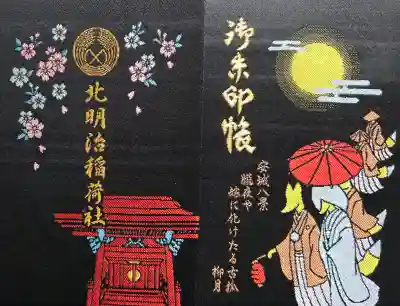 北明治稲荷社
御朱印帳
安城八景
朧夜や
嫁に化けたる古狐
柳月